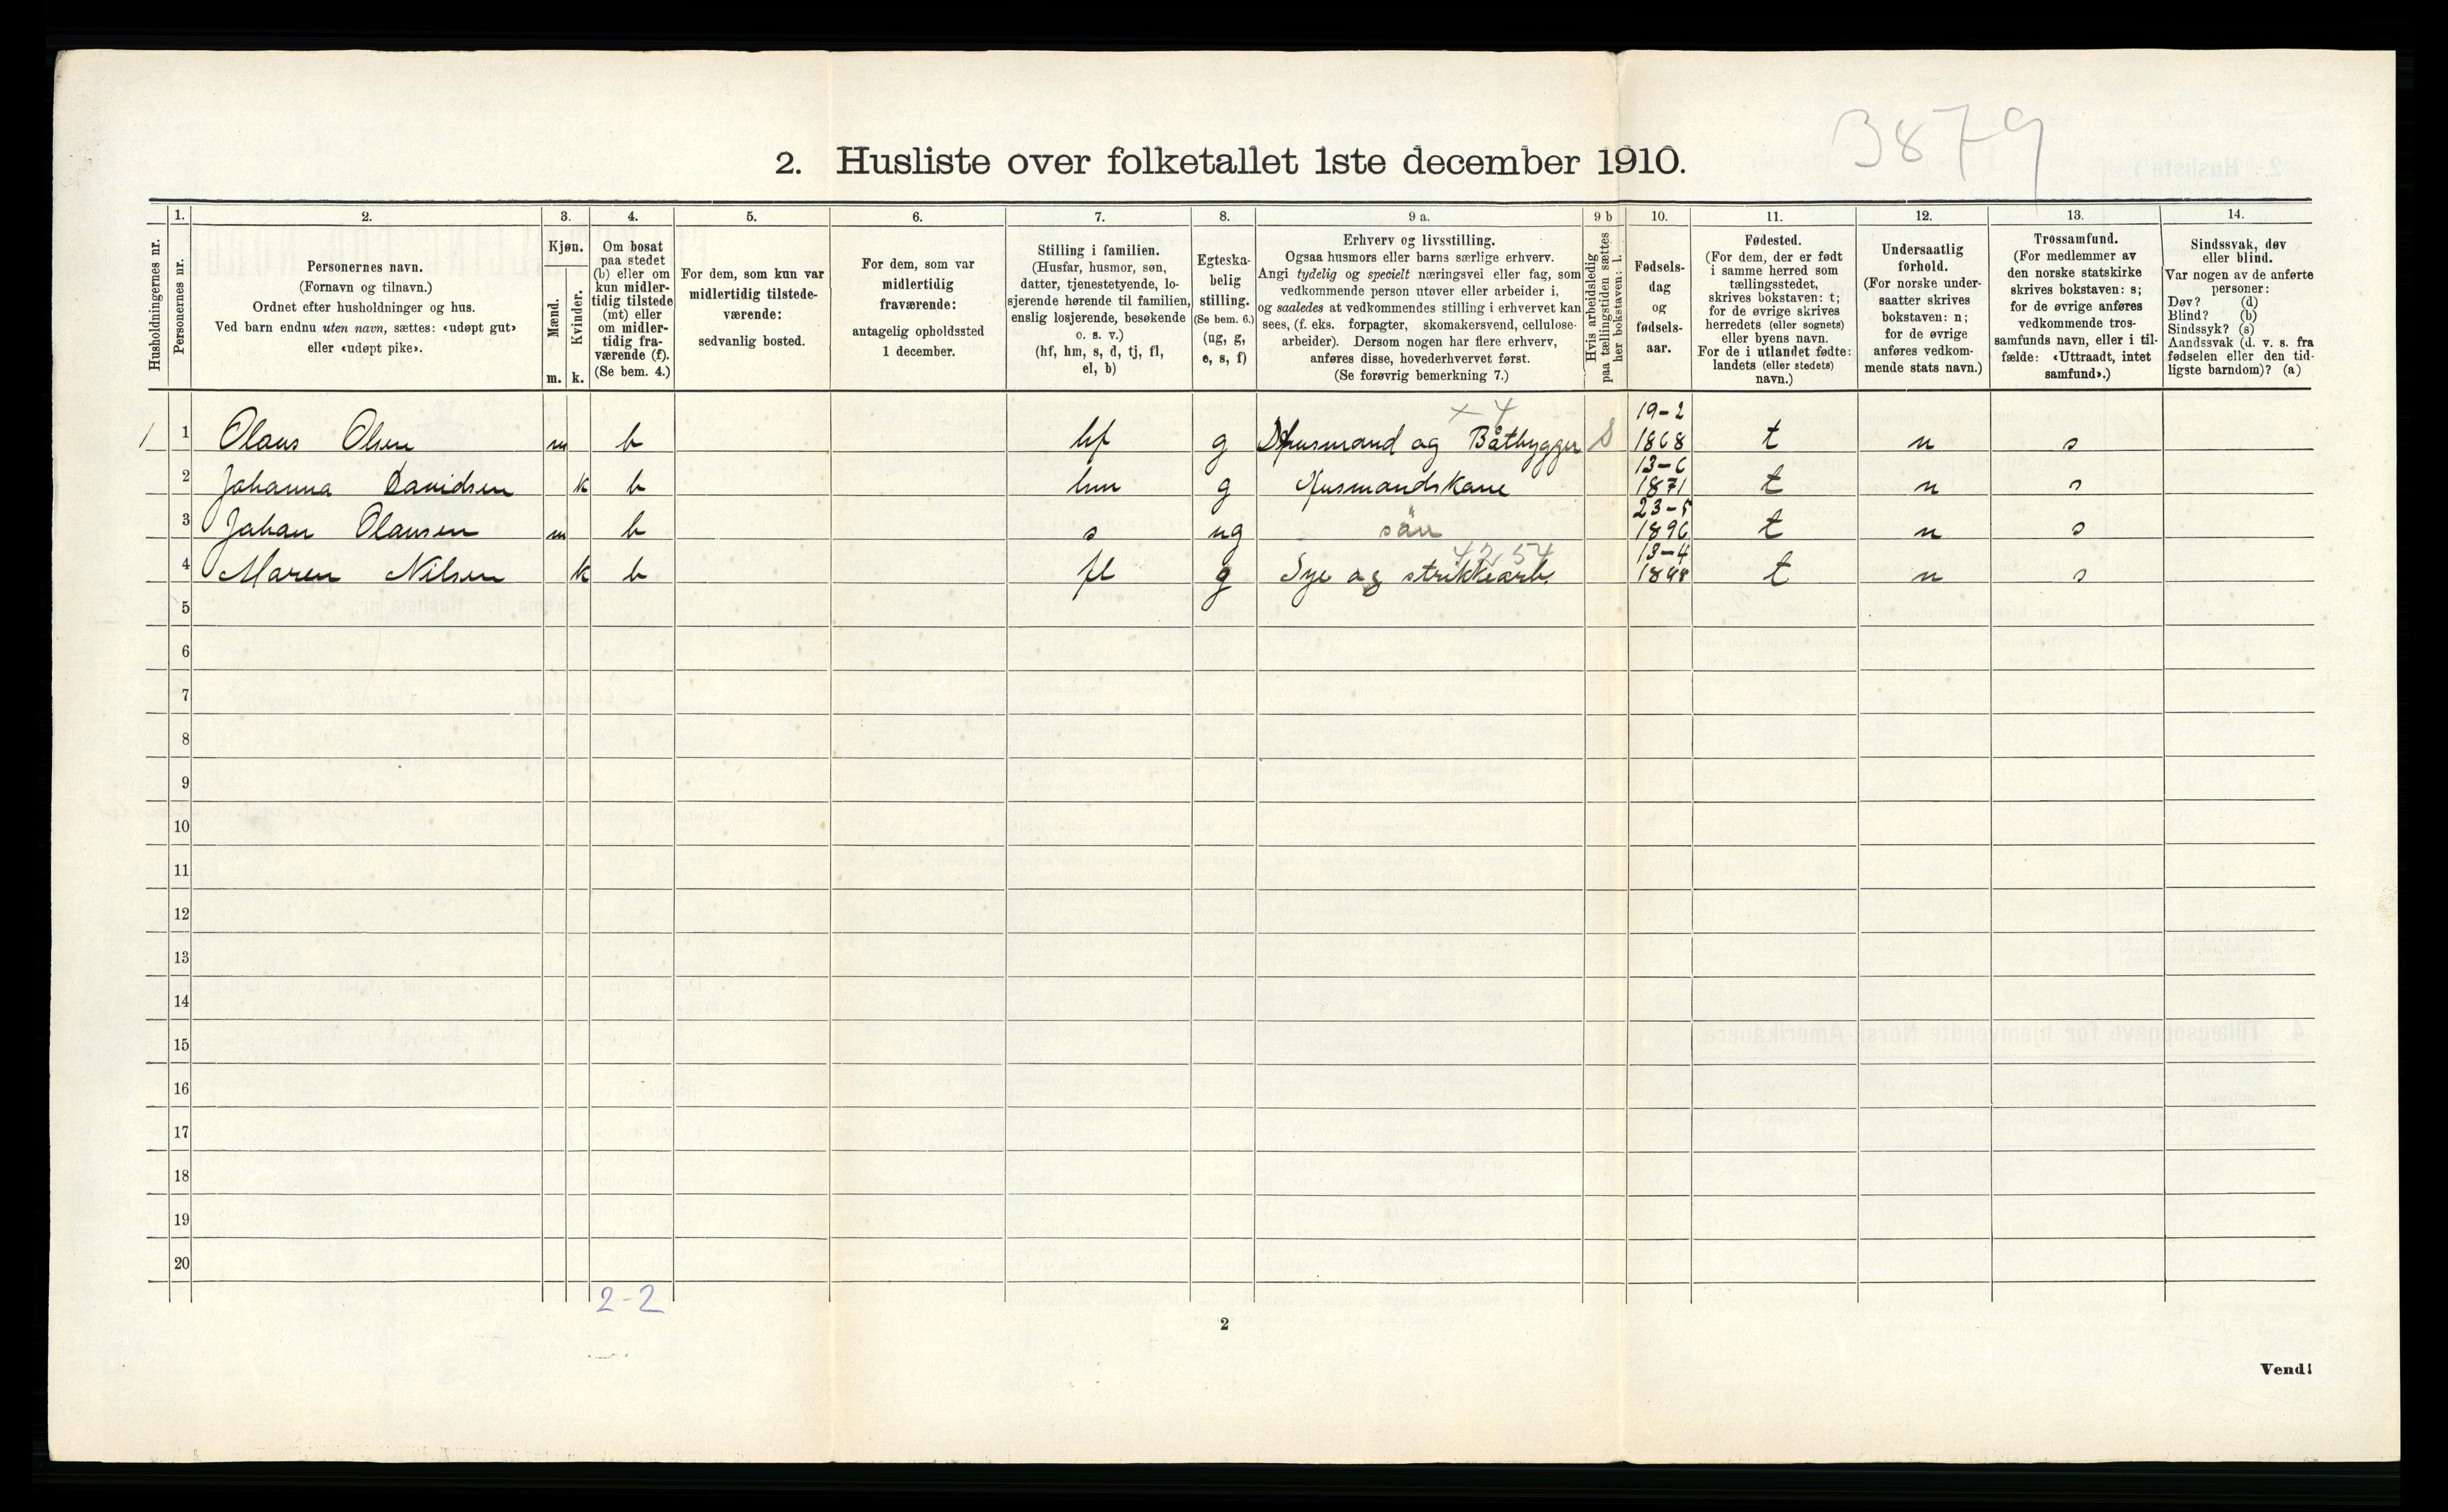 3879
2. Husliste over folketallet 1ste december 1910.
Husholdningernes nr.
1.
Personernes nr.
2.
Personernes navn.
(Fornavn og tilnavn.)
Ordnet efter husholdninger og hus.
Ved barn endnu uten navn, sættes: «udøpt gut»
eller «udøpt pike».
3.
Kjøn.
Mænd.
Kvinder.
m. k.
4.
Om bosat
paa stedet
(b) eller om
kun midler-
tidig tilstede
(mt) eller
om midler-
tidig fra-
værende (f).
(Se bem. 4.)
5.
For dem, som kun var
midlertidig tilstede-
værende:
sedvanlig bosted.
6.
For dem, som var
midlertidig
fraværende:
antagelig opholdssted
1 december.
7.
Stilling i familien.
(Husfar, husmor, søn,
datter, tjenestetyende, lo-
sjerende hørende til familien,
enslig losjerende, besøkende
o. s. v.)
(hf, hm, s, d, tj, fl,
el, b)
8.
Egteska-
belig
stilling.
(Se bem. 6.)
(ug, g,
e, s, f)
9 a.
Erhverv og livsstilling.
Ogsaa husmors eller barns særlige erhverv.
Angi tydelig og specielt næringsvei eller fag, som
vedkommende person utøver eller arbeider i,
og saaledes at vedkommendes stilling i erhvervet kan
sees, (f. eks. forpagter, skomakersvend, cellulose-
arbeider). Dersom nogen har flere erhverv,
anføres disse, hovederhvervet først.
(Se forøvrig bemerkning 7.)
9 b
Hvis arbeidsledig
paa tællingstiden sættes
her bokstaven: l.
10.
Fødsels-
dag
og
fødsels-
aar.
11.
Fødested.
(For dem, der er født
i samme herred som
tællingsstedet,
skrives bokstaven: t;
for de øvrige skrives
herredets (eller sognets)
eller byens navn.
For de i utlandet fødte:
landets (eller stedets)
navn.)
12.
Undersaatlig
forhold.
(For norske under-
saatter skrives
bokstaven: n;
for de øvrige
anføres vedkom-
mende stats navn.)
13.
Trossamfund.
(For medlemmer av
den norske statskirke
skrives bokstaven: s;
for de øvrige anføres
vedkommende tros-
samfunds navn, eller i til-
fælde: «Uttraadt, intet
samfund».)
14.
Sindssvak, døv
eller blind.
Var nogen av de anførte
personer:
Døv? (d)
Blind? (b)
Sindssyk? (s)
Aandssvak (d. v. s. fra
fødselen eller den tid-
ligste barndom)? (a)
1 1 Olaus Olsen m b hf g Husmand og Båtbygger 19-2 1868 t n s
2 Johanna Davidsen k b hm g Husmandskone 13-6 1871 t n s
3 Johan Olausen m b s ug sön 23-5 1896 t n s
4 Maren Nilsen k b fl g Sye og strikkearb. 13-4 t n s
5
6
7
8
9
10
11
12
13
14
15
16
17
18
19
20
2-2
2
Vend!